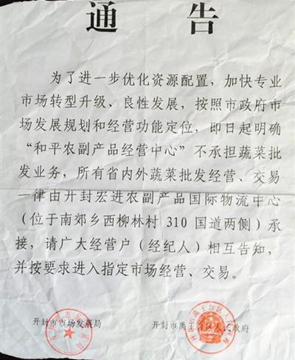 通告
为了进一步优化资源配置，加快专业
市场转型升级、良性发展，按照市政府市
场发展规划和经营功能定位，即日起明确
“和平农副产品经营中心”不承担蔬菜批
发业务，所有省内外蔬菜批发经营、交易
一律由开封宏进农副产品国际物流中心
（位于南郊乡西柳林村 310 国道两侧）承
接，请广大经营户（经纪人）相互告知，
并按要求进入指定市场经营、交易。
开封市市场发展局 开封市禹王台区人民政府